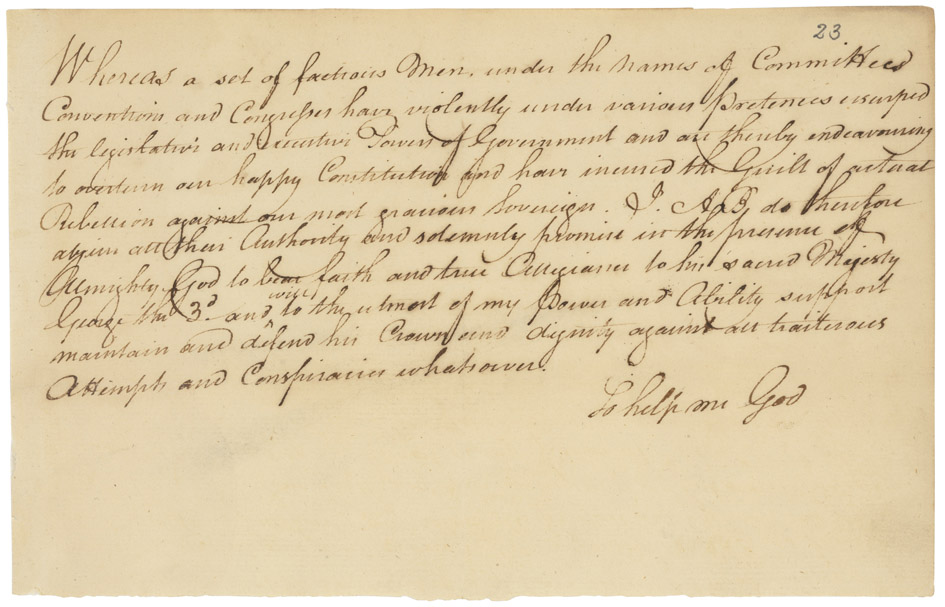 23
Whereas a set of factious Men, under the names of Committees
Conventions and Congresses have violently under various pretences usurped
the legislative and executive Powers of Government and are thereby endeavouring
to overturn our happy Constitution and have incured the Guilt of actual
Rebellion against our most gracious Sovereign. I. A.B. do therefore
abjure all their Authority and solemnly promise in the presence of
Almighty God to bear faith and true Allegiance to his sacred Majesty
George the 3d. and will to the utmost of my Power and Ability support
maintain and defend his Crown and dignity against all traiterous
Attempts and Conspiracies whatsoever.
So help me God